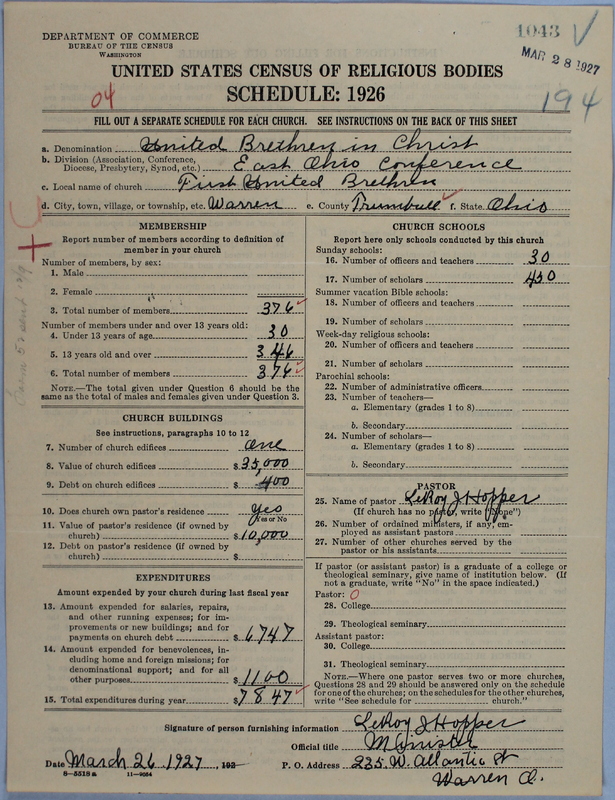 DEPARTMENT OF COMMERCE
BUREAU OF THE CENSUS
WASHINGTON
1043
MAR 28 1927
UNITED STATES CENSUS OF RELIGIOUS BODIES
SCHEDULE: 1926
04
194
FILL OUT A SEPARATE SCHEDULE FOR EACH CHURCH. SEE INSTRUCTIONS ON THE BACK OF THIS SHEET
a. Denomination United Brethren in Christ
b. Division (Association, Conference, Diocese, Presbytery, Synod, etc.) East Ohio Conference
c. Local name of church First United Brethren
d. City, town, village, or township, etc. Warren e. County Trumbull f. State Ohio
MEMBERSHIP
Report number of members according to definition of
member in your church
Number of members, by sex:
1. Male
2. Female
3. Total number of members 376
Number of members under and over 13 years old:
4. Under 13 years of age 30
5. 13 years old and over 346
6. Total number of members 376
NOTE.—The total given under Question 6 should be
same as the total of males and females given under Question 3.
CHURCH BUILDINGS
See instructions, paragraphs 10 to 12
7. Number of church edifices one
8. Value of church edifices $35,000
9. Debt on church edifices $400
10. Does church own pastor's residence yes
Yes or No
11. Value of pastor's residence (if owned by
church) $10,000
12. Debt on pastor's residence (if owned by
church) $
EXPENDITURES
Amount expended by your church during last fiscal year
13. Amount expended for salaries, repairs,
and other running expenses; for im-
provements or new buildings; and for
payments on church debt $6747
14. Amount expended for benevolences, in-
cluding home and foreign missions; for
denominational support; and for all
other purposes $1100
15. Total expenditures during year $7847
CHURCH SCHOOLS
Report here only schools conducted by this church
Sunday schools:
16. Number of officers and teachers 30
17. Number of scholars 450
Summer vacation Bible schools:
18. Number of officers and teachers
19. Number of scholars
Week-day religious schools:
20. Number of officers and teachers
21. Number of scholars
Parochial schools:
22. Number of administrative officers
23. Number of teachers—
a. Elementary (grades 1 to 8)
b. Secondary
24. Number of scholars—
a. Elementary (grades 1 to 8)
b. Secondary
PASTOR
25. Name of pastor LeRoy J Hopper
(If church has no pastor, write "None")
26. Number of ordained ministers, if any, em-
ployed as assistant pastors
27. Number of other churches served by the
pastor or his assistants
If pastor (or assistant pastor) is a graduate of a college or
theological seminary, give name of institution below. (If
not a graduate, write "No" in the space indicated.)
Pastor: 0
28. College
29. Theological seminary
Assistant pastor:
30. College
31. Theological seminary
NOTE.—Where one pastor serves two or more churches,
Questions 28 and 29 should be answered only on the schedule
for one of the churches; on the schedules for the other churches,
write "See schedule for church."
Signature of person furnishing information LeRoy J Hopper
Official title Minister
Date March 26 1927, 192 P. O. Address 235 W. Atlantic St
Warren O.
8—5518a 11—9664